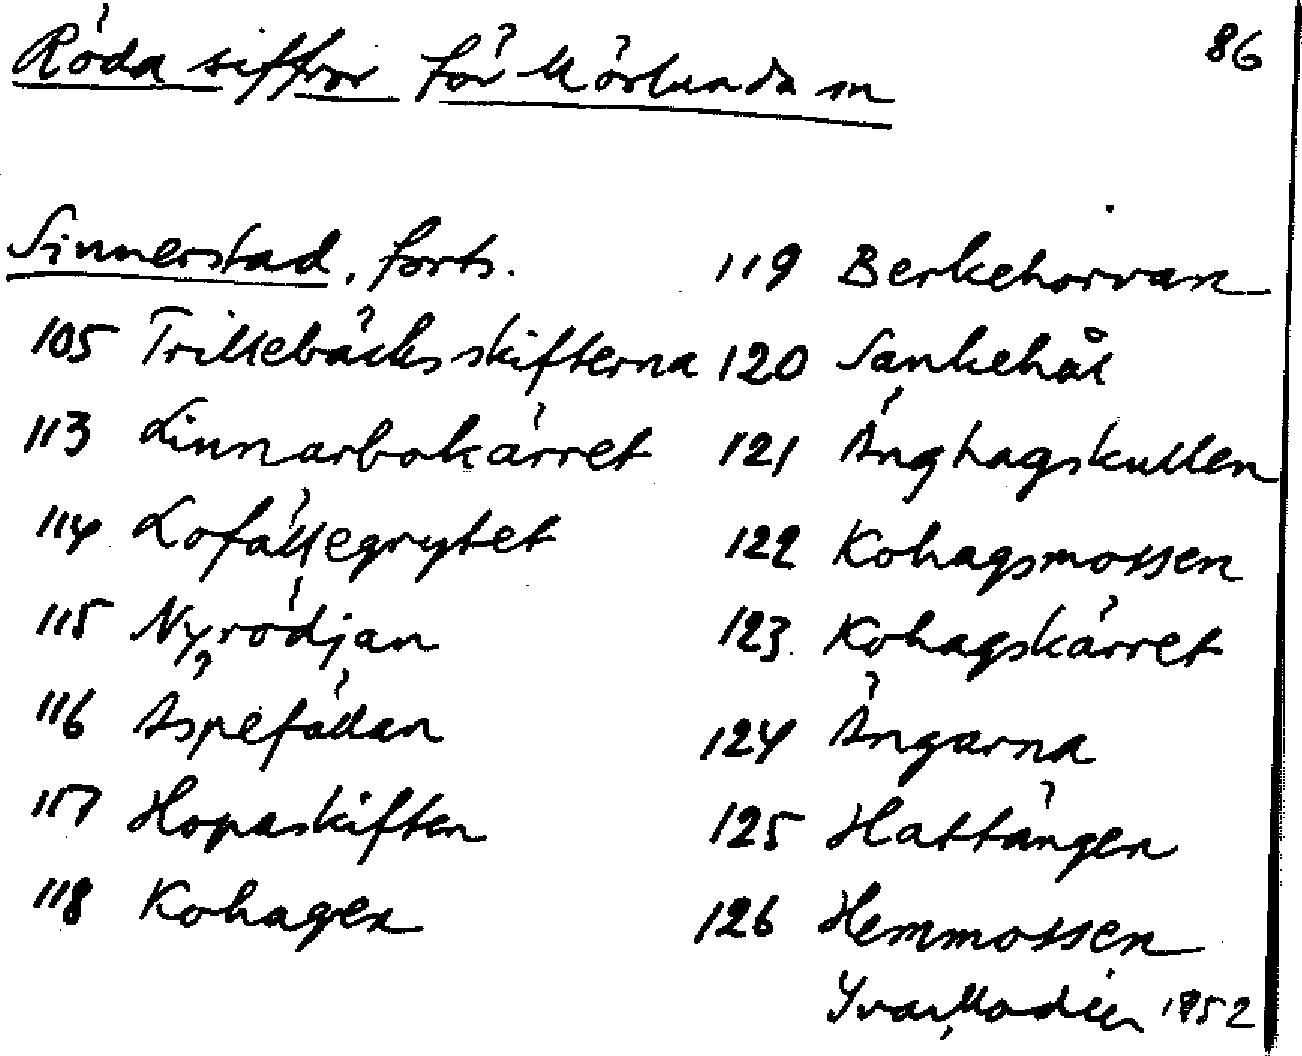 Röda siffror för Mörlunda sn
86
Sinnerstad, forts.
105 Trillebäcksskifterna
113 Linnarbokärret
114 Lofällegrytet
115 Nyrödjan
116 Äspefällan
117 Hopaskiften
118 Kohagen
119 Berkehorvan
120 Sankehål
121 Änghagskullen
122 Kohagsmossen
123 Kohagskärret
124 Ängarna
125 Hattängen
126 Hemmossen
Yvar Modéer 1952